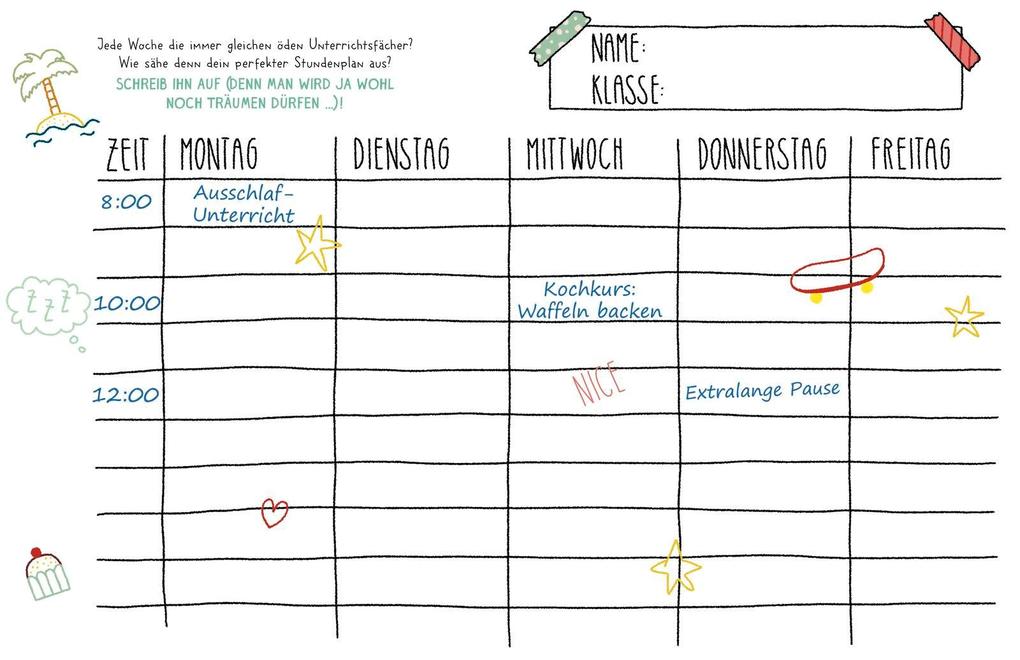 Jede Woche die immer gleichen öden Unterrichtsfächer?
Wie sähe denn dein perfekter Stundenplan aus?
SCHREIB IHN AUF (DENN MAN WIRD JA WOHL
NOCH TRÄUMEN DÜRFEN ...)!
NAME:
KLASSE:
ZEIT MONTAG DIENSTAG MITTWOCH DONNERSTAG FREITAG
8:00 Ausschlaf-
Unterricht
ZZZ
10:00 Kochkurs:
Waffeln backen
12:00 NICE Extralange Pause